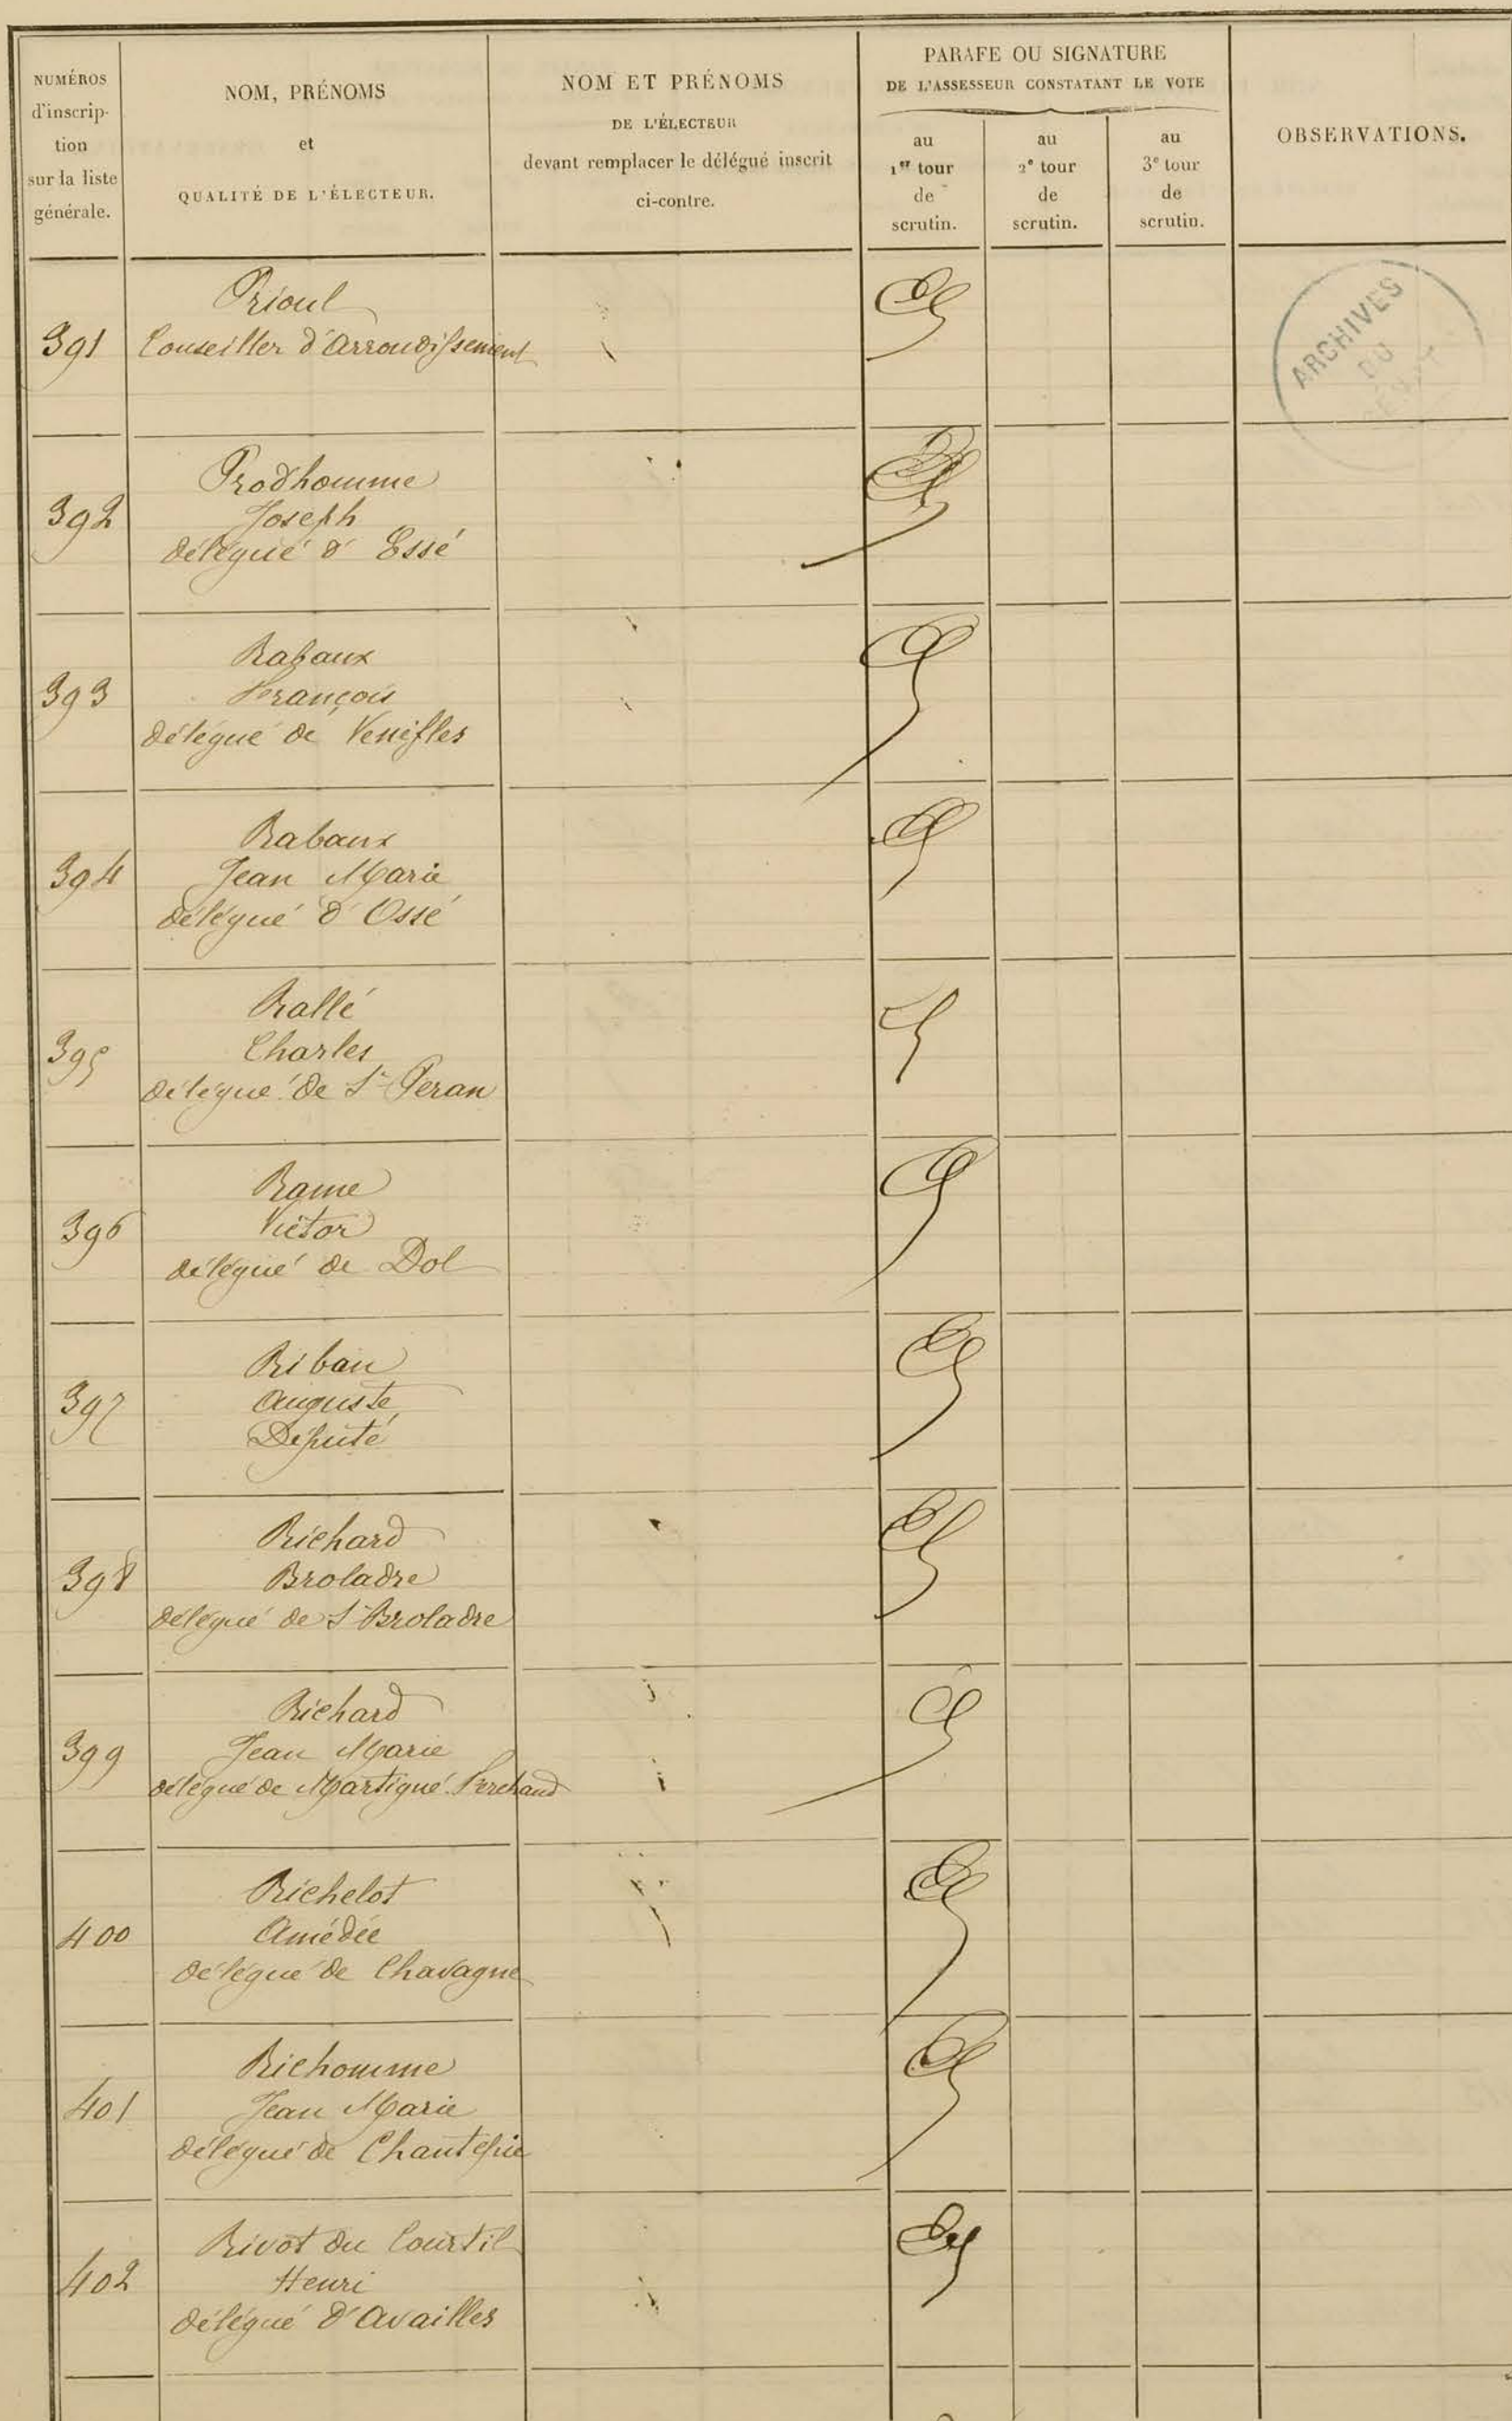 NUMÉROS
d'inscrip-
tion
sur la liste
générale.
NOM, PRÉNOMS
et
QUALITÉ DE L'ÉLECTEUR.
NOM ET PRÉNOMS
DE L'ÉLECTEUR
devant remplacer le délégué inscrit
ci-contre.
PARAFE OU SIGNATURE
DE L'ASSESSEUR CONSTATANT LE VOTE
au
1er tour
de
scrutin.
au
2e tour
de
scrutin.
au
3e tour
de
scrutin.
OBSERVATIONS.
ARCHIVES
DU
SÉNAT
Prioul
391 Conseiller d'Arrondissement
Prodhomme
392 Joseph
délégué d'Essé
Rabaux
393 François
délégué de Veneffles
Rabaux
394 Jean Marie
délégué d'Ossé
Rallé
395 Charles
délégué de St Peran
Rame
396 Victor
délégué de Dol
Riban
397 Auguste
Député
Richard
398 Broladre
délégué de St Broladre
Richard
399 Jean Marie
délégué de Martigné-Ferchaud
Richelot
400 Amédée
délégué de Chavagne
Richomme
401 Jean Marie
délégué de Chantepie
Rivot du Courtil
402 Henri
délégué d'Availles